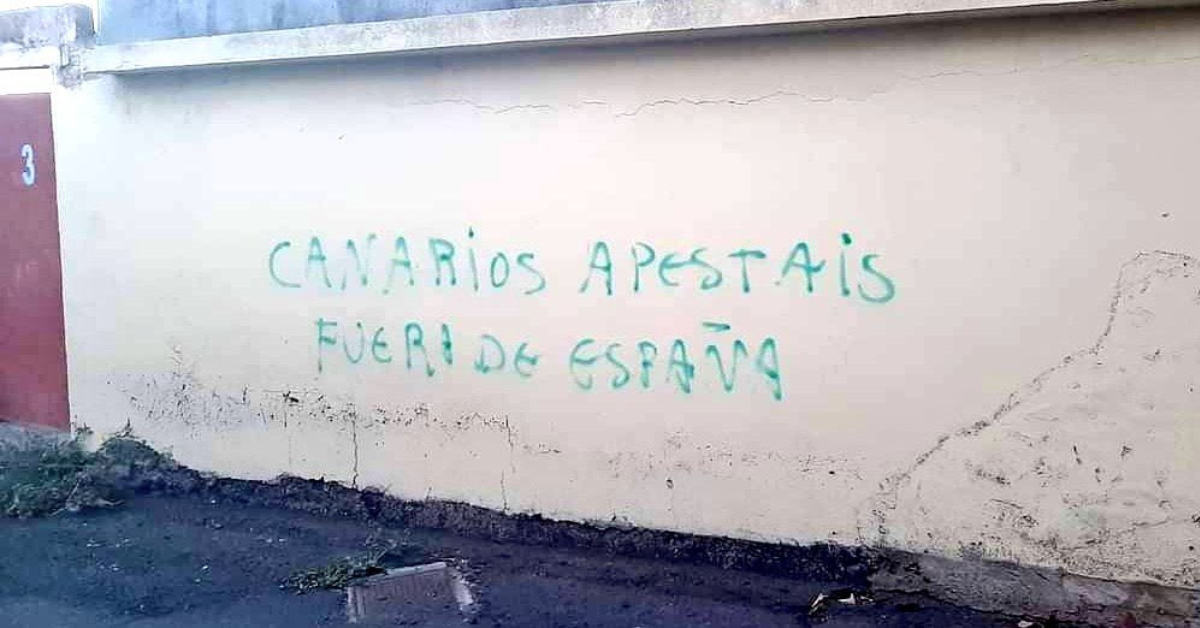 3
CANARIOS APESTAIS
FUERA DE ESPAÑA